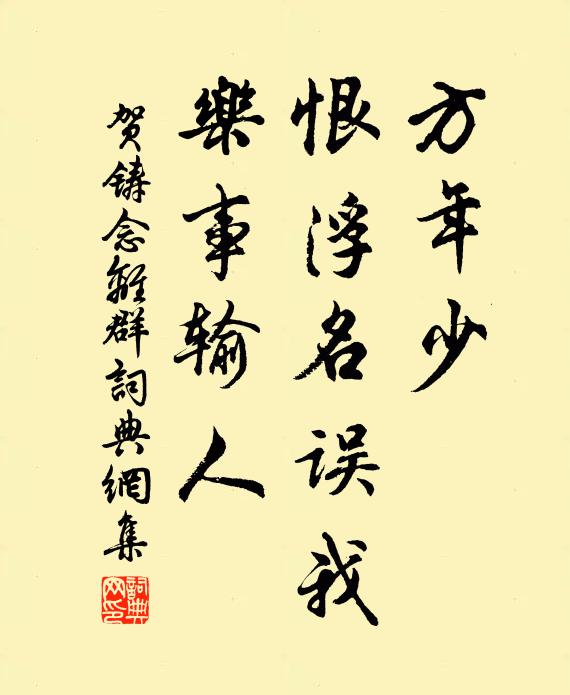 方年少
恨浮名误我
樂事输人
贺鑄念離群詞典網集
詞典网印